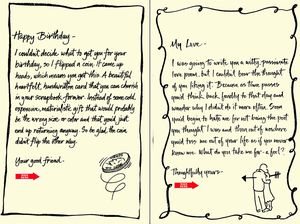 Happy Birthday -
I couldn't decide what to get you for your
birthday, so I flipped a coin. It came up
heads, which means you get this: A beautiful
heartfelt, handwritten card that you can cherish
in your scrapbook forever. Instead of some cold,
expensive, materialistic gift that would probably
be the wrong size or color and that you'd just
end up returning anyway. So be glad the coin
didn't flip the other way.
Your good friend-
My Love -
I was going to write you a witty, passionate
love poem, but I couldn't bear the thought
of you liking it. Because as time passes
you'd think back, fondly to that day and
wonder why I didn't do it more often. Soon
you'd begin to hate me for not being the poet
you thought I was and then out of nowhere
you'd toss me out of your life as if you never
knew me. What do you take me for - a fool?
Thoughtfully yours-